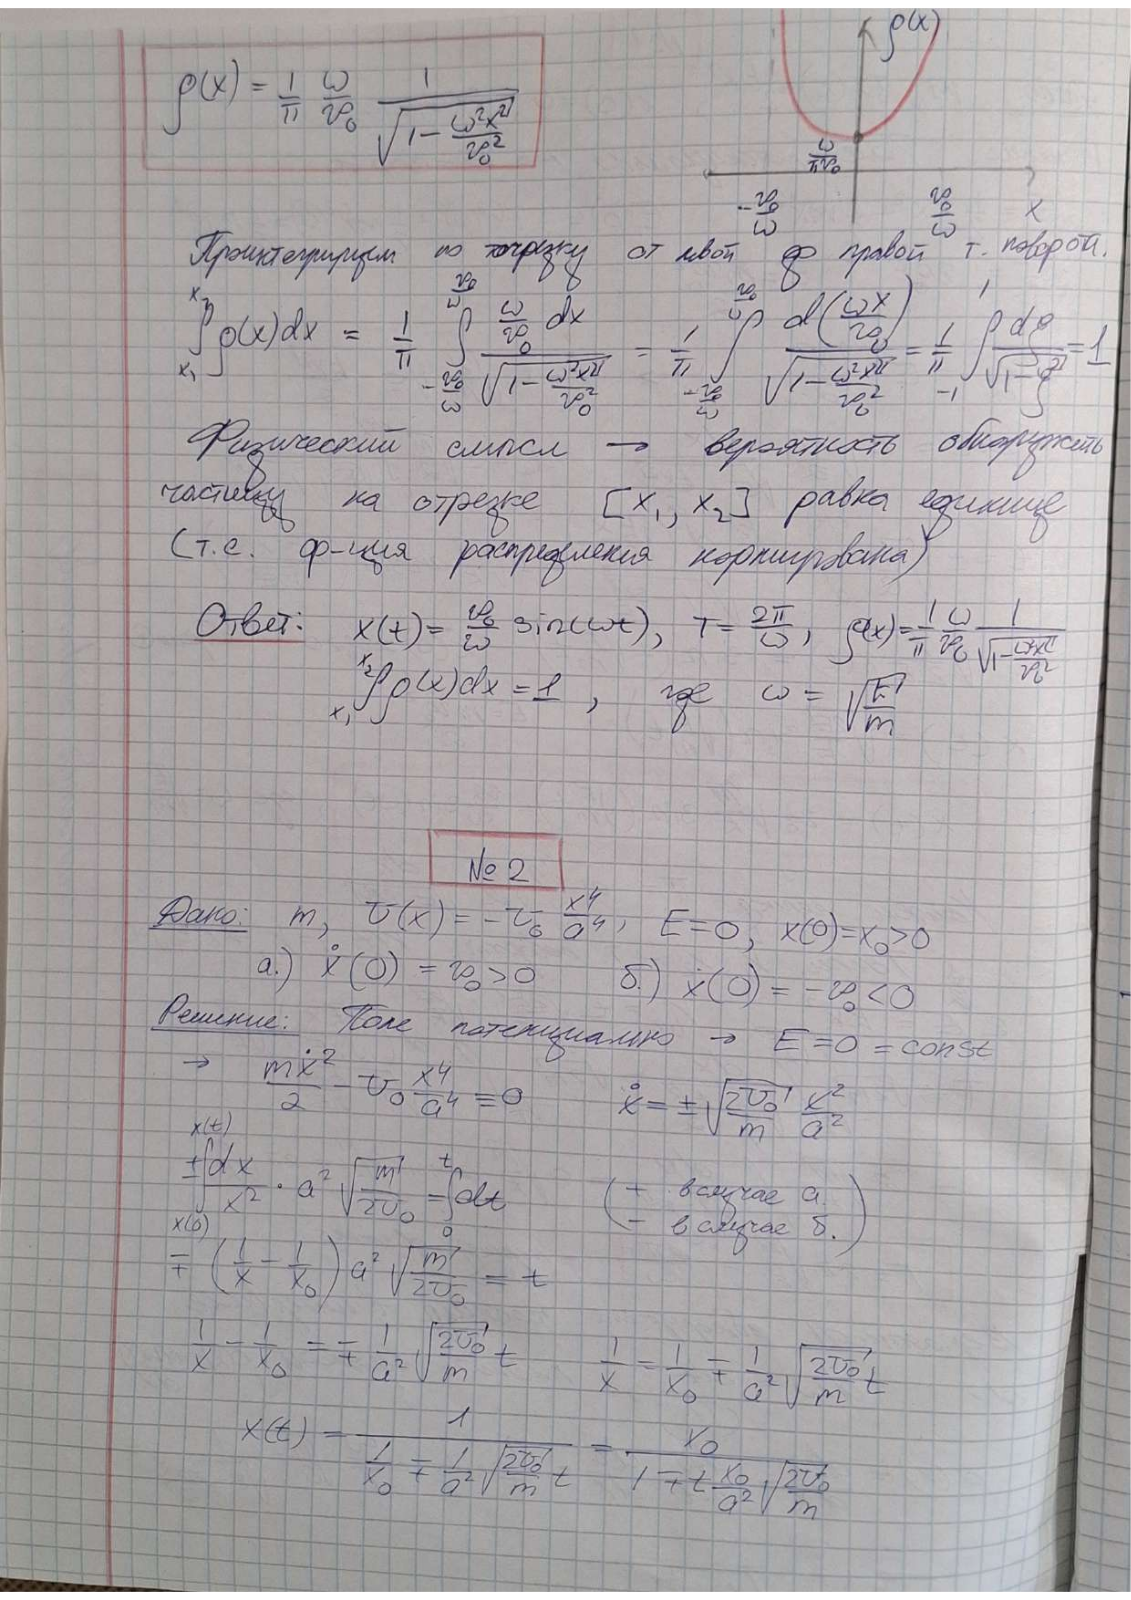 ρ(x) = 1/π ω/v₀ 1/√(1 - ω²x²/v₀²)
ρ(x)
ω/πv₀
-v₀/ω v₀/ω x
Проинтегрируем по отрезку от левой до правой т. поворота.
∫_{x₁}^{x₂} ρ(x)dx = 1/π ∫_{-v₀/ω}^{v₀/ω} (ω/v₀ dx)/√(1 - ω²x²/v₀²) = 1/π ∫_{-v₀/ω}^{v₀/ω} d(ωx/v₀)/√(1 - ω²x²/v₀²) = 1/π ∫_{-1}^{1} dρ/√(1-ρ²) = 1
Физический смысл → вероятность обнаружить
частицу на отрезке [x₁, x₂] равна единице
(т.е. ф-ция распределения нормирована)
Ответ: x(t) = v₀/ω sin(ωt), T = 2π/ω, ρ(x) = 1/π ω/v₀ 1/√(1 - ω²x²/v₀²)
∫_{x₁}^{x₂} ρ(x)dx = 1, где ω = √(k/m)
№ 2
Дано: m, U(x) = -U₀ x⁴/a⁴, E=0, x(0)=x₀>0
а.) ẋ(0) = v₀>0 б.) ẋ(0) = -v₀<0
Решение: Поле потенциально → E=0=const
→ mẋ²/2 - U₀ x⁴/a⁴ = 0 ẋ = ±√(2U₀/m) x²/a²
±∫_{x(0)}^{x(t)} dx/x² · a² √(m/2U₀) = ∫_0^t dt (+ в случае а.
- в случае б.)
∓ (1/x - 1/x₀) a² √(m/2U₀) = t
1/x - 1/x₀ = ∓ 1/a² √(2U₀/m) t 1/x = 1/x₀ ∓ 1/a² √(2U₀/m) t
x(t) = 1/(1/x₀ ∓ 1/a² √(2U₀/m) t) = x₀/(1 ∓ t x₀/a² √(2U₀/m))